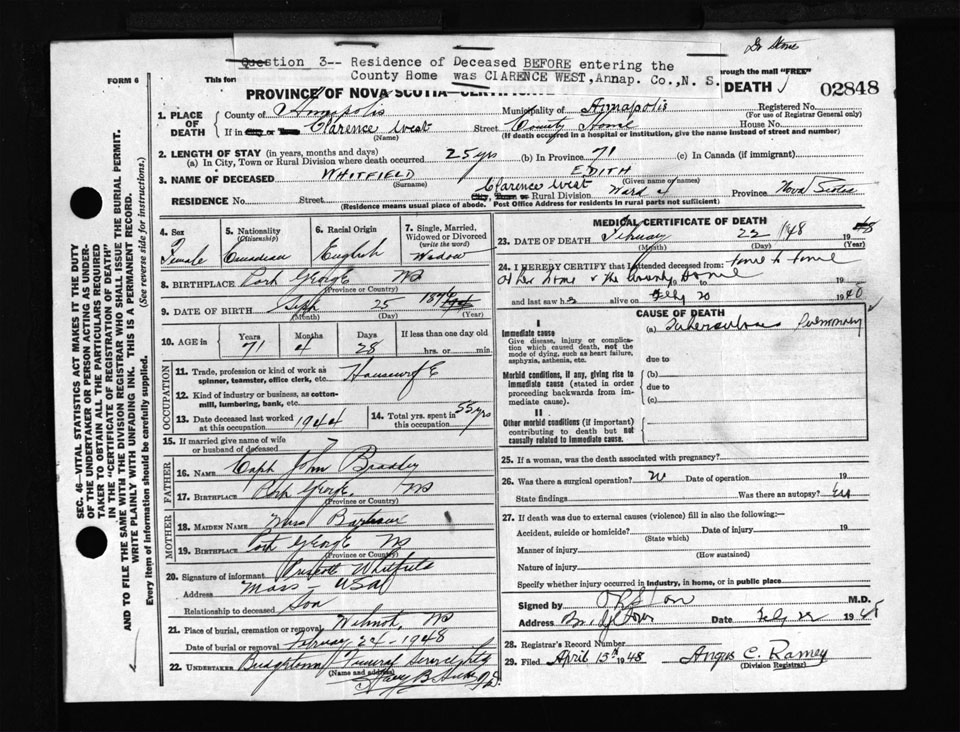 Dr Stone
Question 3-- Residence of Deceased BEFORE entering the
County Home was CLARENCE WEST, Annap. Co., N. S.
FORM 6
This for
rough the mail "FREE"
PROVINCE OF NOVA SCOTIA—CERTIFICATE
DEATH
02848
1. PLACE OF DEATH
County of Annapolis
Municipality of Annapolis
Registered No.
(For use of Registrar General only)
If in City or Town Clarence West Street County Home House No.
(Name)
(If death occurred in a hospital or institution, give the name instead of street and number)
2. LENGTH OF STAY (in years, months and days)
(a) In City, Town or Rural Division where death occurred 25 yrs (b) In Province 71 (c) In Canada (if immigrant)
3. NAME OF DECEASED WHITFIELD EDITH
Surname
Given name or names)
RESIDENCE No. Street Clarence West Ward 2 Province Nova Scotia
City, Town or Rural Division
(Residence means usual place of abode. Post Office Address for residents in rural parts not sufficient)
4. Sex
Female
5. Nationality
(Citizenship)
Canadian
6. Racial Origin
English
7. Single, Married, Widowed or Divorced
(write the word)
Widow
8. BIRTHPLACE Port George NS
(Province or Country)
9. DATE OF BIRTH Sept 25 1876
(Month) (Day) (Year)
10. AGE in
Years Months Days If less than one day old
71 4 28 hrs. or min
OCCUPATION
11. Trade, profession or kind of work as
spinner, teamster, office clerk, etc. Housewife
12. Kind of industry or business, as cotton-
mill, lumbering, bank, etc.
13. Date deceased last worked
at this occupation 1944
14. Total yrs. spent in
this occupation 55 yrs
15. If married give name of wife
or husband of deceased ?
FATHER
16. NAME Capt John Bradley
17. BIRTHPLACE Port George NS
(Province or Country)
MOTHER
18. MAIDEN NAME Miss Barteaux
19. BIRTHPLACE Port George NS
(Province or Country)
20. Signature of informant Prescott Whitfield
Address Mass USA
Relationship to deceased Son
21. Place of burial, cremation or removal Wilmot, NS
Date of burial or removal February 24 - 1948
22. UNDERTAKER Bridgetown Funeral Service Ltd
(Name and address)
MEDICAL CERTIFICATE OF DEATH
23. DATE OF DEATH February 22 / 48 19
(Month) (Day) (Year)
24. I HEREBY CERTIFY that I attended deceased from: time to time
at her home & the County Home 19
and last saw h alive on Feby 20 1948
CAUSE OF DEATH
I
Immediate cause
Give disease, injury or complica-
tion which caused death, not the
mode of dying, such as heart failure,
asphyxia, asthenia, etc.
(a) Tuberculosis Pulmonary
due to
Morbid conditions, if any, giving rise to
immediate cause (stated in order
proceeding backwards from im-
mediate cause).
(b)
due to
(c)
II
Other morbid conditions (if important)
contributing to death but not
causally related to immediate cause.
25. If a woman, was the death associated with pregnancy?
26. Was there a surgical operation? Date of operation 19
State findings Was there an autopsy?
27. If death was due to external causes (violence) fill in also the following:—
Accident, suicide or homicide? Date of injury 19
(State which)
Manner of injury
(How sustained)
Nature of injury
Specify whether injury occurred in industry, in home, or in public place
Signed by M.D.
Address Bridgetown Date Feby 22 1948
28. Registrar's Record Number
29. Filed April 15th 1948 Angus C. Ramey
(Division Registrar)
SEC. 46—VITAL STATISTICS ACT MAKES IT THE DUTY
OF THE UNDERTAKER OR PERSON ACTING AS UNDER-
TAKER TO OBTAIN ALL THE PARTICULARS REQUIRED
IN THE "CERTIFICATE OF REGISTRATION OF DEATH"
AND TO FILE THE SAME WITH THE DIVISION REGISTRAR WHO SHALL ISSUE THE BURIAL PERMIT.
WRITE PLAINLY WITH UNFADING INK. THIS IS A PERMANENT RECORD.
Every item of information should be carefully supplied. (See reverse side for instructions.)